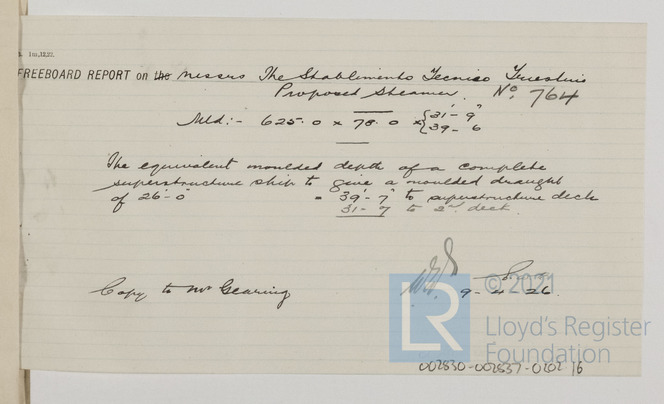 1m,12,22.
FREEBOARD REPORT on the Messrs The Stablimento Tecnico Triestino
Proposed Steamer. No. 764
Mld:- 625.0 x 78.0 x {31'-9"
39-6
The equivalent moulded depth of a complete
superstructure ship to give a moulded draught
of 26'-0" = 39-7" to superstructure deck
31-7 to 2nd deck.
Copy to Mr Gearing
9-4-26.
© 2021
LR
Lloyd's Register
Foundation
002830-002837-0202/6